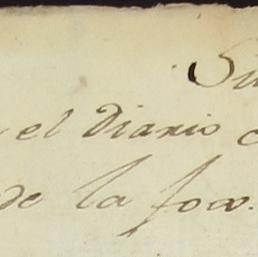 Su
el Diario
de la fox.